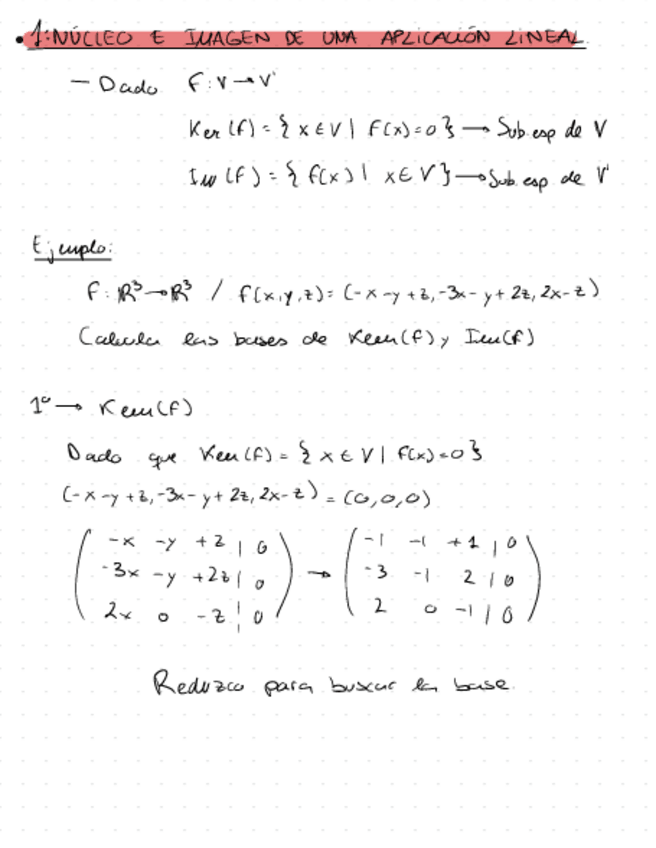 • 1: NÚCLEO E IMAGEN DE UNA APLICACIÓN LINEAL
— Dado f: V → V'
Ker (f) = { x ∈ V | f(x) = 0 } → Sub.esp de V
Im (f) = { f(x) | x ∈ V } → Sub.esp de V'
Ejemplo:
f: ℝ³ → ℝ³ / f(x,y,z) = (-x -y +z, -3x - y + 2z, 2x - z)
Calcula las bases de Ker(f) y Im(f)
1º → Ker(f)
Dado que Ker(f) = { x ∈ V | f(x) = 0 }
(-x -y +z, -3x - y + 2z, 2x - z) = (0,0,0)
( -x -y +z | 0 ) → ( -1 -1 +1 | 0 )
( -3x -y +2z | 0 ) ( -3 -1 2 | 0 )
( 2x 0 -z | 0 ) ( 2 0 -1 | 0 )
Reduzco para buscar la base.